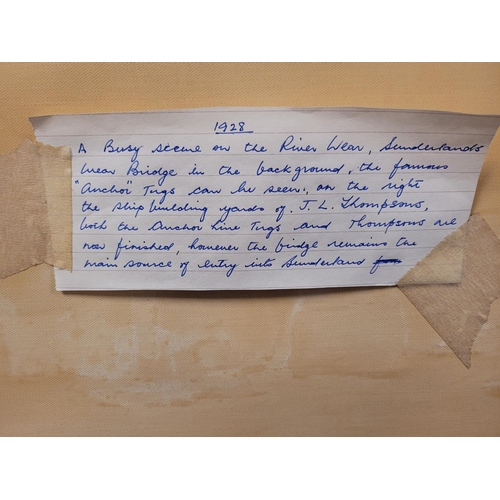 1928
A Busy scene on the River Wear, Sunderlands
Wear Bridge in the background, the famous
"Anchor" Tugs can be seen, on the right
the ship building yards of J. L. Thompsons,
both the Anchor Line Tugs and Thompsons are
now finished, however the bridge remains the
main source of entry into Sunderland